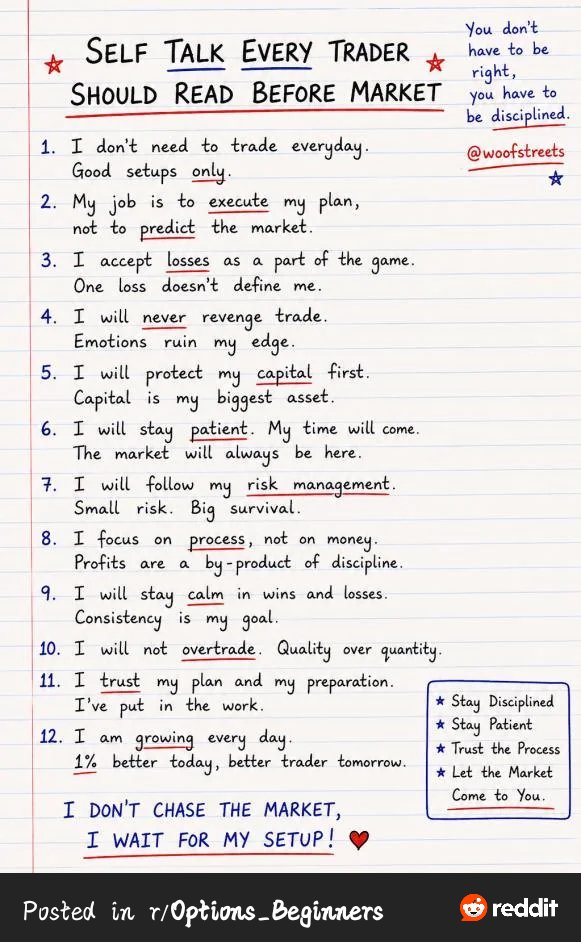 SELF TALK EVERY TRADER
SHOULD READ BEFORE MARKET
You don't
have to be
right,
you have to
be disciplined.
@woofstreets
1. I don't need to trade everyday.
Good setups only.
2. My job is to execute my plan,
not to predict the market.
3. I accept losses as a part of the game.
One loss doesn't define me.
4. I will never revenge trade.
Emotions ruin my edge.
5. I will protect my capital first.
Capital is my biggest asset.
6. I will stay patient. My time will come.
The market will always be here.
7. I will follow my risk management.
Small risk. Big survival.
8. I focus on process, not on money.
Profits are a by-product of discipline.
9. I will stay calm in wins and losses.
Consistency is my goal.
10. I will not overtrade. Quality over quantity.
11. I trust my plan and my preparation.
I've put in the work.
12. I am growing every day.
1% better today, better trader tomorrow.
★ Stay Disciplined
★ Stay Patient
★ Trust the Process
★ Let the Market
Come to You.
I DON'T CHASE THE MARKET,
I WAIT FOR MY SETUP!
Posted in r/Options_Beginners
reddit